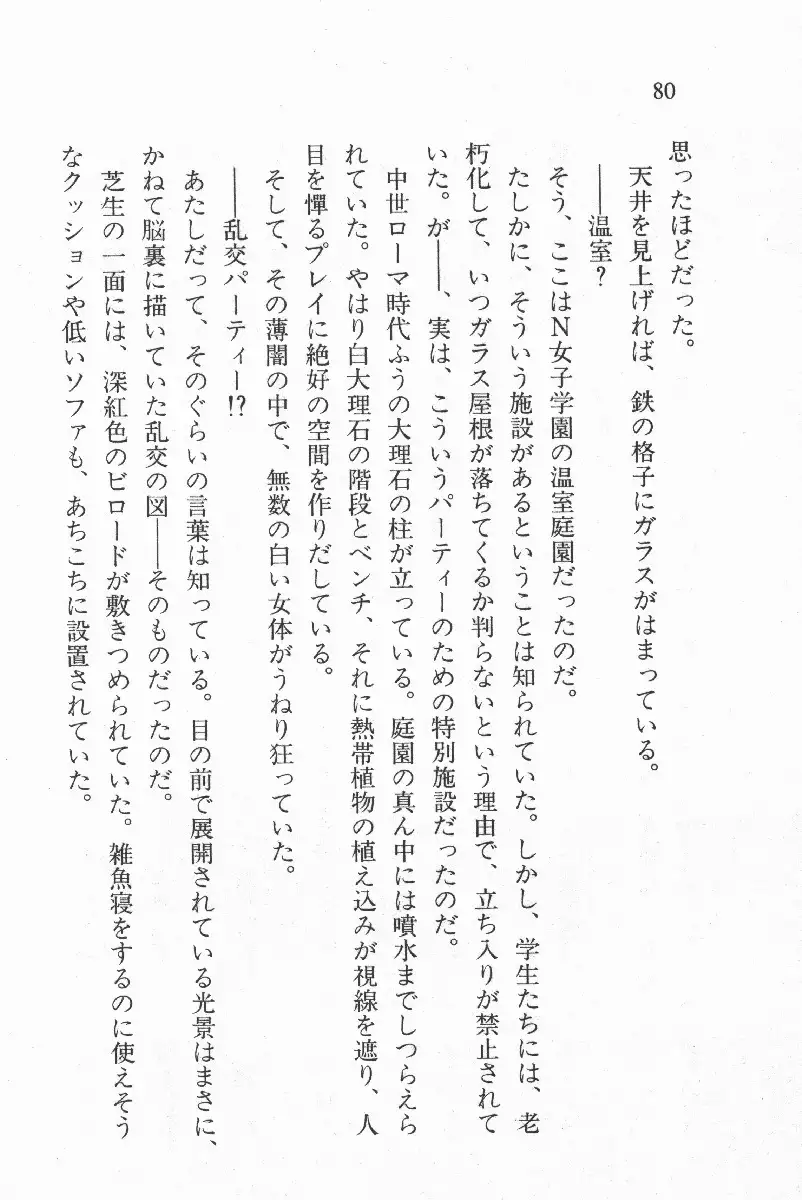 80
思ったほどだった。
天井を見上げれば、鉄の格子にガラスがはまっている。
――温室？
そう、ここはN女子学園の温室庭園だったのだ。
たしかに、そういう施設があるということは知られていた。しかし、学生たちには、老
朽化して、いつガラス屋根が落ちてくるか判らないという理由で、立ち入りが禁止されて
いた。が――、実は、こういうパーティーのための特別施設だったのだ。
中世ローマ時代ふうの大理石の柱が立っている。庭園の真ん中には噴水までしつらえら
れていた。やはり白大理石の階段とベンチ、それに熱帯植物の植え込みが視線を遮り、人
目を憚るプレイに絶好の空間を作りだしている。
そして、その薄闇の中で、無数の白い女体がうねり狂っていた。
――乱交パーティー!?
あたしだって、そのぐらいの言葉は知っている。目の前で展開されている光景はまさに、
かねて脳裏に描いていた乱交の図――そのものだったのだ。
芝生の一面には、深紅色のビロードが敷きつめられていた。雑魚寝をするのに使えそう
なクッションや低いソファも、あちこちに設置されていた。